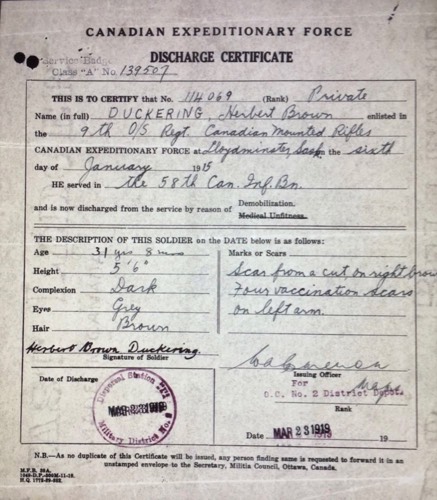 CANADIAN EXPEDITIONARY FORCE
DISCHARGE CERTIFICATE
Service Badge
Class "A" No. 139507
THIS IS TO CERTIFY that No. 114069 (Rank) Private
Name (in full) DUCKERING, Herbert Brown enlisted in
the 9th O/S Regt. Canadian Mounted Rifles
CANADIAN EXPEDITIONARY FORCE at Lloydminster Sask the sixth
day of January 1915
HE served in the 58th Can. Inf. Bn.
and is now discharged from the service by reason of Demobilization.
Medical Unfitness.
THE DESCRIPTION OF THIS SOLDIER on the DATE below is as follows:
Age 31 yrs 8 mos
Height 5' 6"
Complexion Dark
Eyes Grey
Hair Brown
Marks or Scars
Scar from a cut on right brow
Four vaccination scars
on left arm.
Herbert Brown Duckering.
Signature of Soldier
Issuing Officer
For
O.C. No. 2 District Depot
Rank
Date of Discharge
Dispersal Station "I"
MAR 23 1919
Military District No. 2
Date MAR 23 1919 19
N.B.—As no duplicate of this Certificate will be issued, any person finding same is requested to forward it in an
unstamped envelope to the Secretary, Militia Council, Ottawa, Canada.
M.F.B. 39A.
H.Q. 1772-39-882.